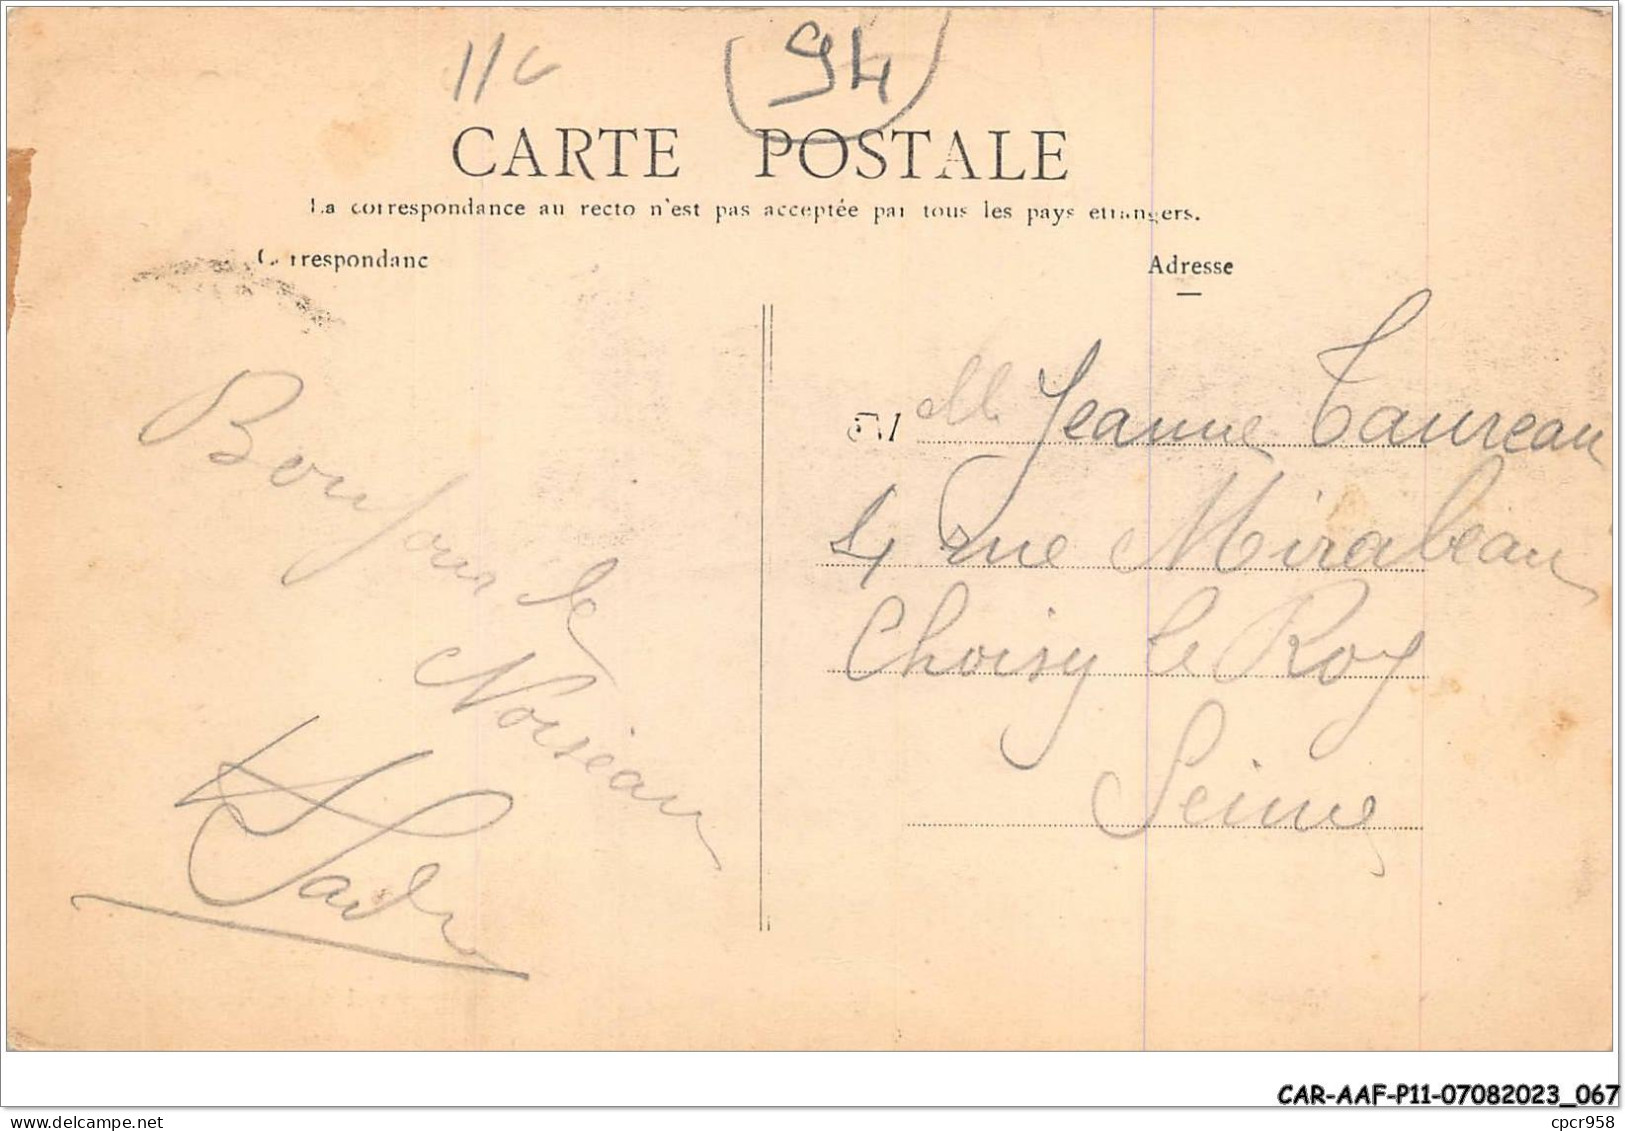 94
CARTE POSTALE
La correspondance au recto n'est pas acceptée par tous les pays etrangers.
Correspondanc
Adresse
Bonjour de
Noiseau
Mlle Jeanne Taureau
4 rue Mirabeau
Choisy le Roy
Seine
CAR-AAF-P11-07082023_067
cpcr958